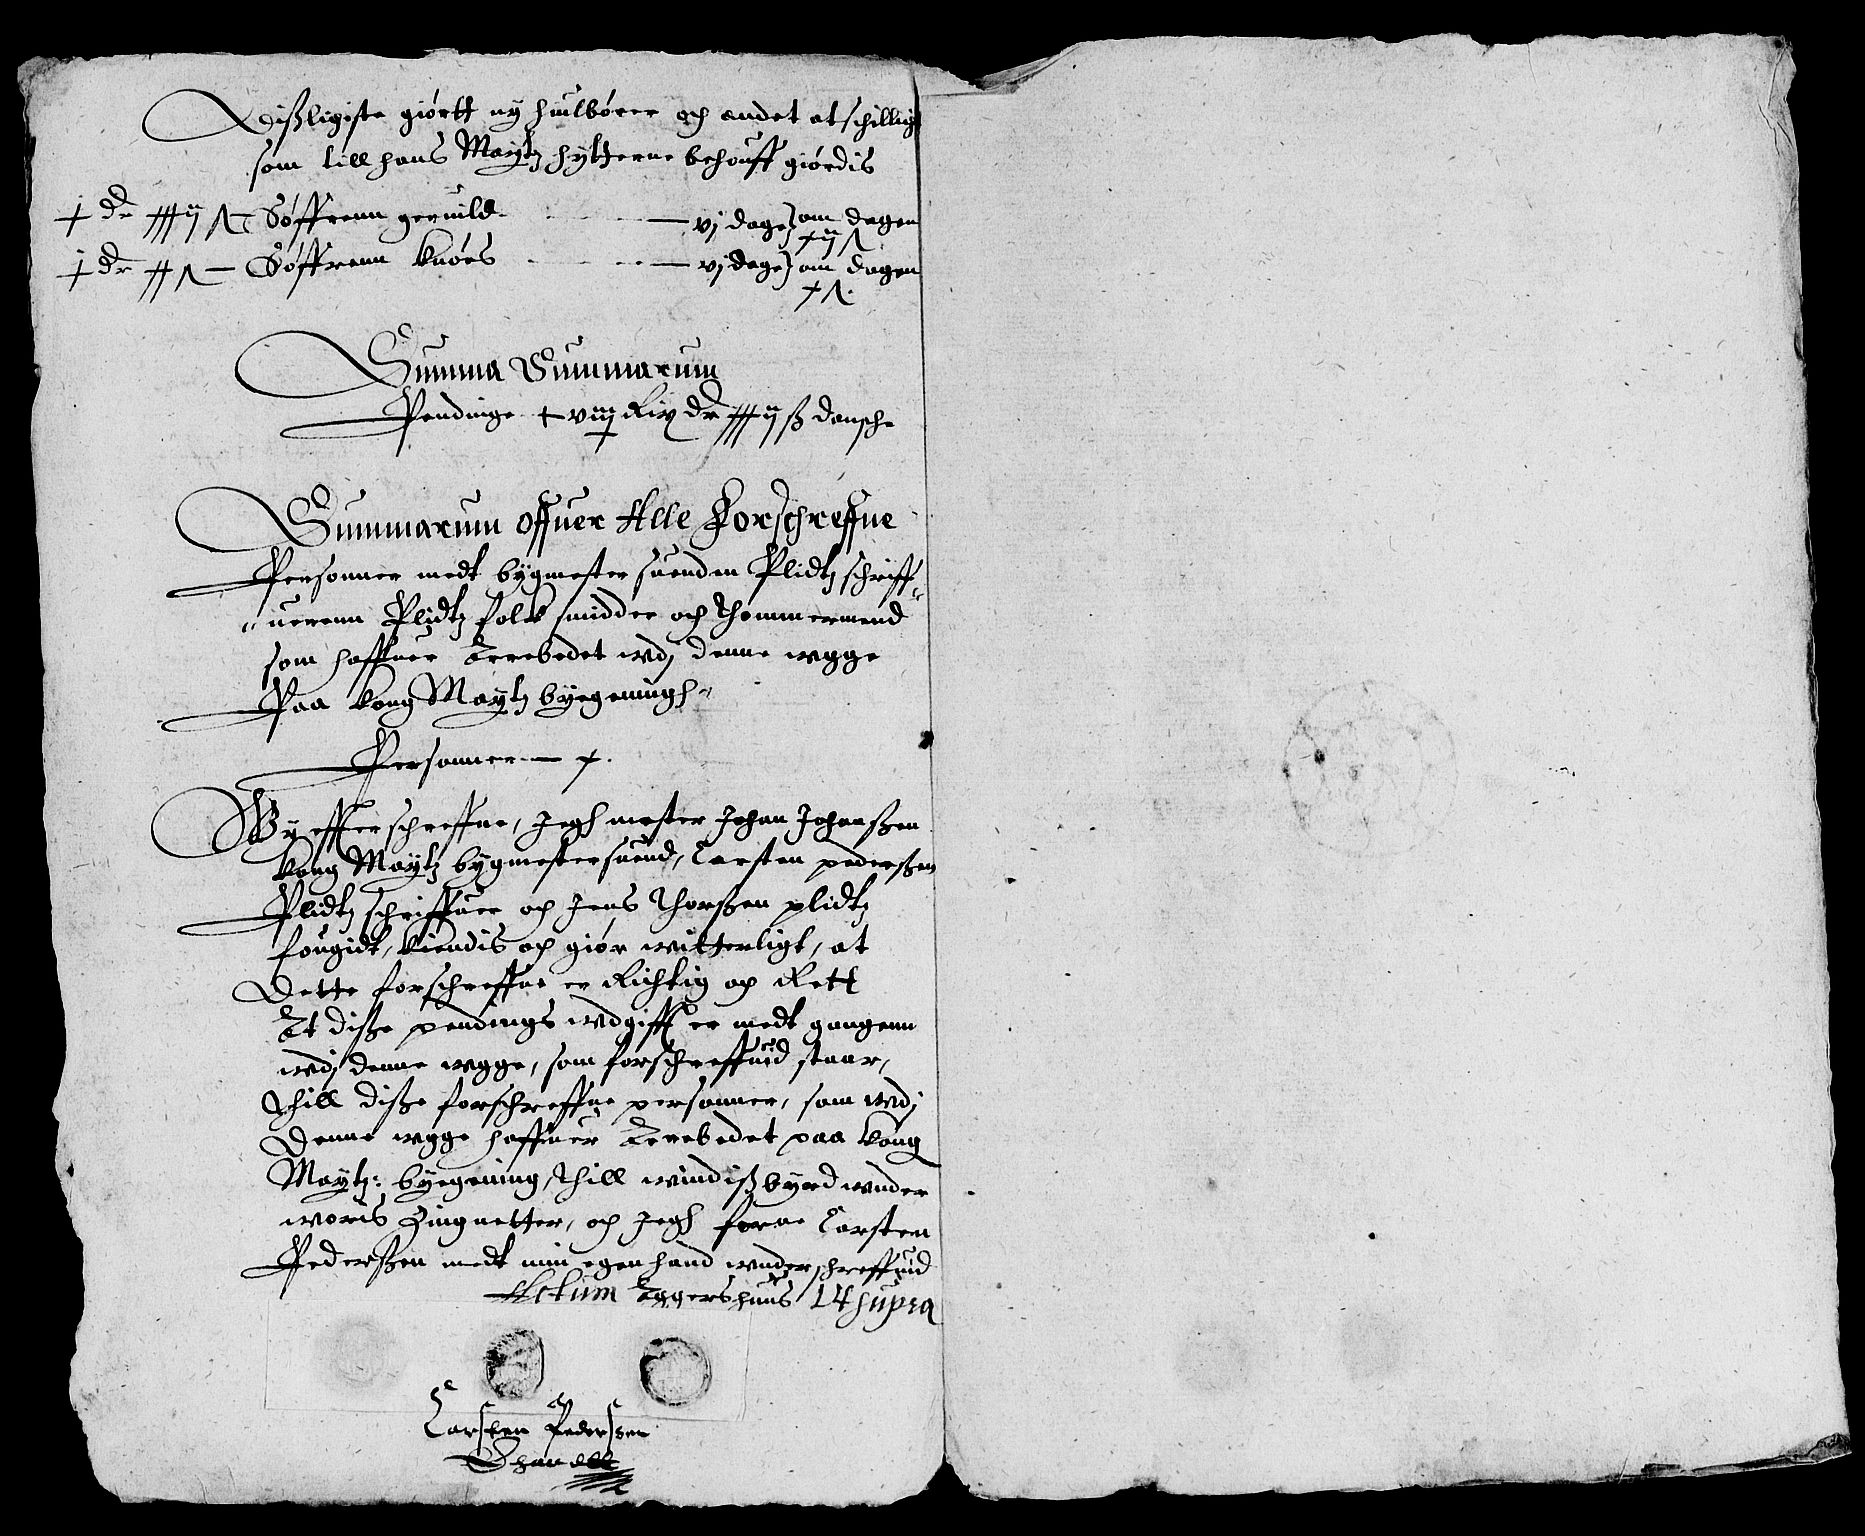 Dißligiste giörtt ny hiulbörer och andet atschilligt
som till hans Maytz hytterne behouff giördis
j dr Söffrenn vj dage om dagen
j dr Söffrenn knöes vj dage om dagen
Summa Summarum
Pendinge dr ß dansche
Summarum offuer Alle Forschreffne
Personner medt bygmester suenden Plidtz schriff-
uerenn Plidtz folk smidder och Thommermend
som haffuer Arrebedet wdj denne wgge
Paa kong Maytz byegeningh
Personner
Wy effterschreffne, Jegh mester Johan Johanßen
kong Maytz bygmestersuend, Carsten pederßen
Plidtz schriffuer och Jens Thorßen plidtz
fougidt, kiendis och giör witterligt, at
Dette forschreffne er Richtig och Rett
At diße pendings wdgifft er medt gangenn
wdj denne wgge, som forschreffuid staar,
Thill diße forschreffne personner, som wdj
Denne wgge haffuer Arrebedet paa kong
Maytz: byegening, Thill windißbyrd wnder
woris Zingnetter, och Jegh forne Carsten
Pederßen medt min egen hand wnderschreffuid
Actum Aggershuus Ut supra
Carsten Pederßen